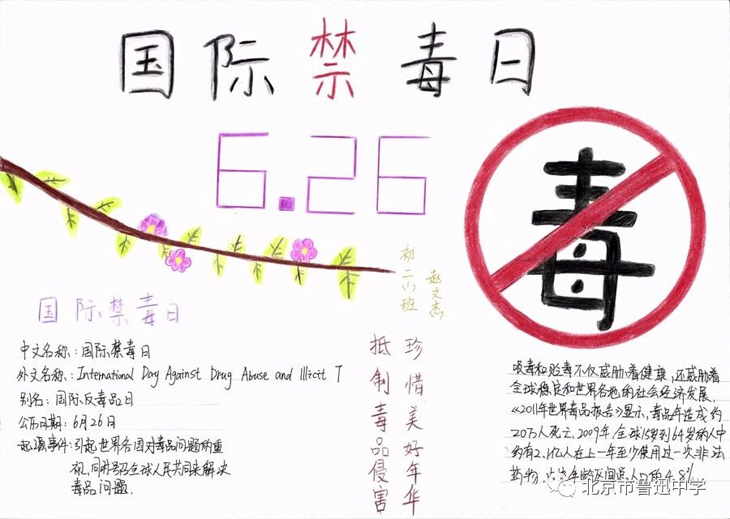 国际禁毒日
6.26
毒
初二(1)班
赵文杰
国际禁毒日
中文名称：国际禁毒日
外文名称：International Day Against Drug Abuse and Illictt T
别名：国际反毒品日
公历日期：6月26日
起源事件：引起世界各国对毒品问题的重
视，同时号召全球人民共同来解决
毒品问题.
珍惜美好年华
抵制毒品侵害
吸毒和贩毒不仅威胁着健康，还威胁着
全球稳定和世界各地的社会经济发展，
《2011年世界毒品报告》显示，毒品年造成约
20万人死亡，2009年，全球15岁到64岁的人中
约有2.1亿人在上一年至少使用过一次非法
药物，占 4.8%
北京市鲁迅中学